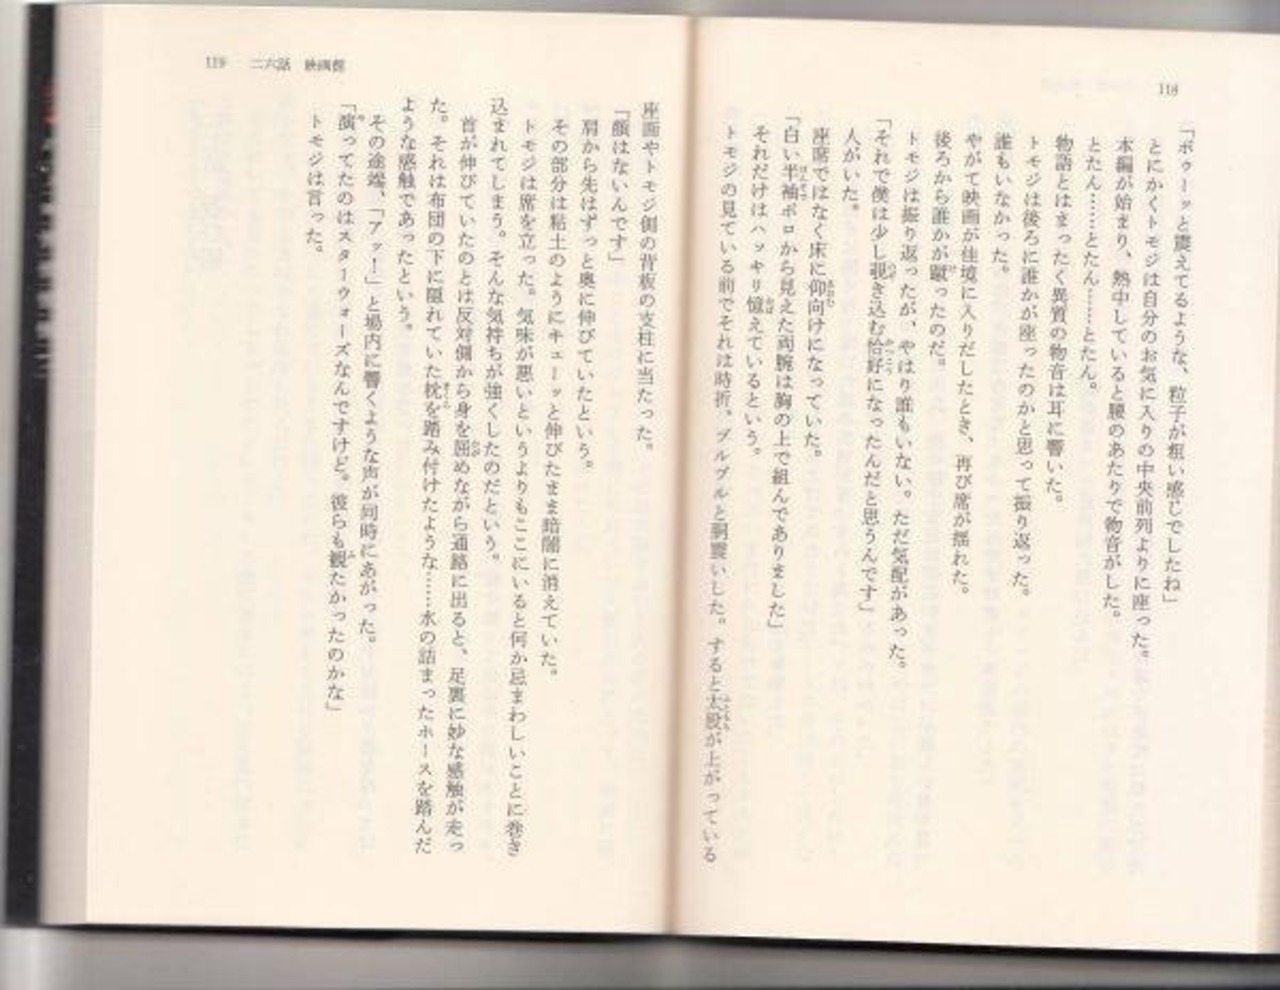 118
「ボゥーッと震えてるような、粒子が粗い感じでしたね」
とにかくトモジは自分のお気に入りの中央前列よりに座った。
本編が始まり、熱中していると腰のあたりで物音がした。
とたん……とたん……とたん。
物語とはまったく異質の物音は耳に響いた。
トモジは後ろに誰かが座ったのかと思って振り返った。
誰もいなかった。
やがて映画が佳境に入りだしたとき、再び席が揺れた。
後ろから誰かが蹴ったのだ。
トモジは振り返ったが、やはり誰もいない。ただ気配があった。
「それで僕は少し覗き込む恰好になったんだと思うんです」
人がいた。
座席ではなく床に仰向けになっていた。
「白い半袖ポロから見えた両腕は胸の上で組んでありました」
それだけはハッキリ憶えているという。
トモジの見ている前でそれは時折、ブルブルと胴震いした。すると太股が上がっている
119 二六話 映画館
座面やトモジ側の背板の支柱に当たった。
「顔はないんです」
肩から先はずっと奥に伸びていたという。
その部分は粘土のようにキューッと伸びたまま暗闇に消えていた。
トモジは席を立った。気味が悪いというよりもここにいると何か忌まわしいことに巻き
込まれてしまう。そんな気持ちが強くしたのだという。
首が伸びていたのとは反対側から身を屈めながら通路に出ると、足裏に妙な感触が走っ
た。それは布団の下に隠れていた枕を踏み付けたような……水の詰まったホースを踏んだ
ような感触であったという。
その途端、「アッー」と場内に響くような声が同時にあがった。
「演ってたのはスターウォーズなんですけど。彼らも観たかったのかな」
トモジは言った。